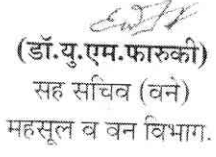 (डॉ.यु.एम.फारुकी)
सह सचिव (वने)
महसूल व वन विभाग.